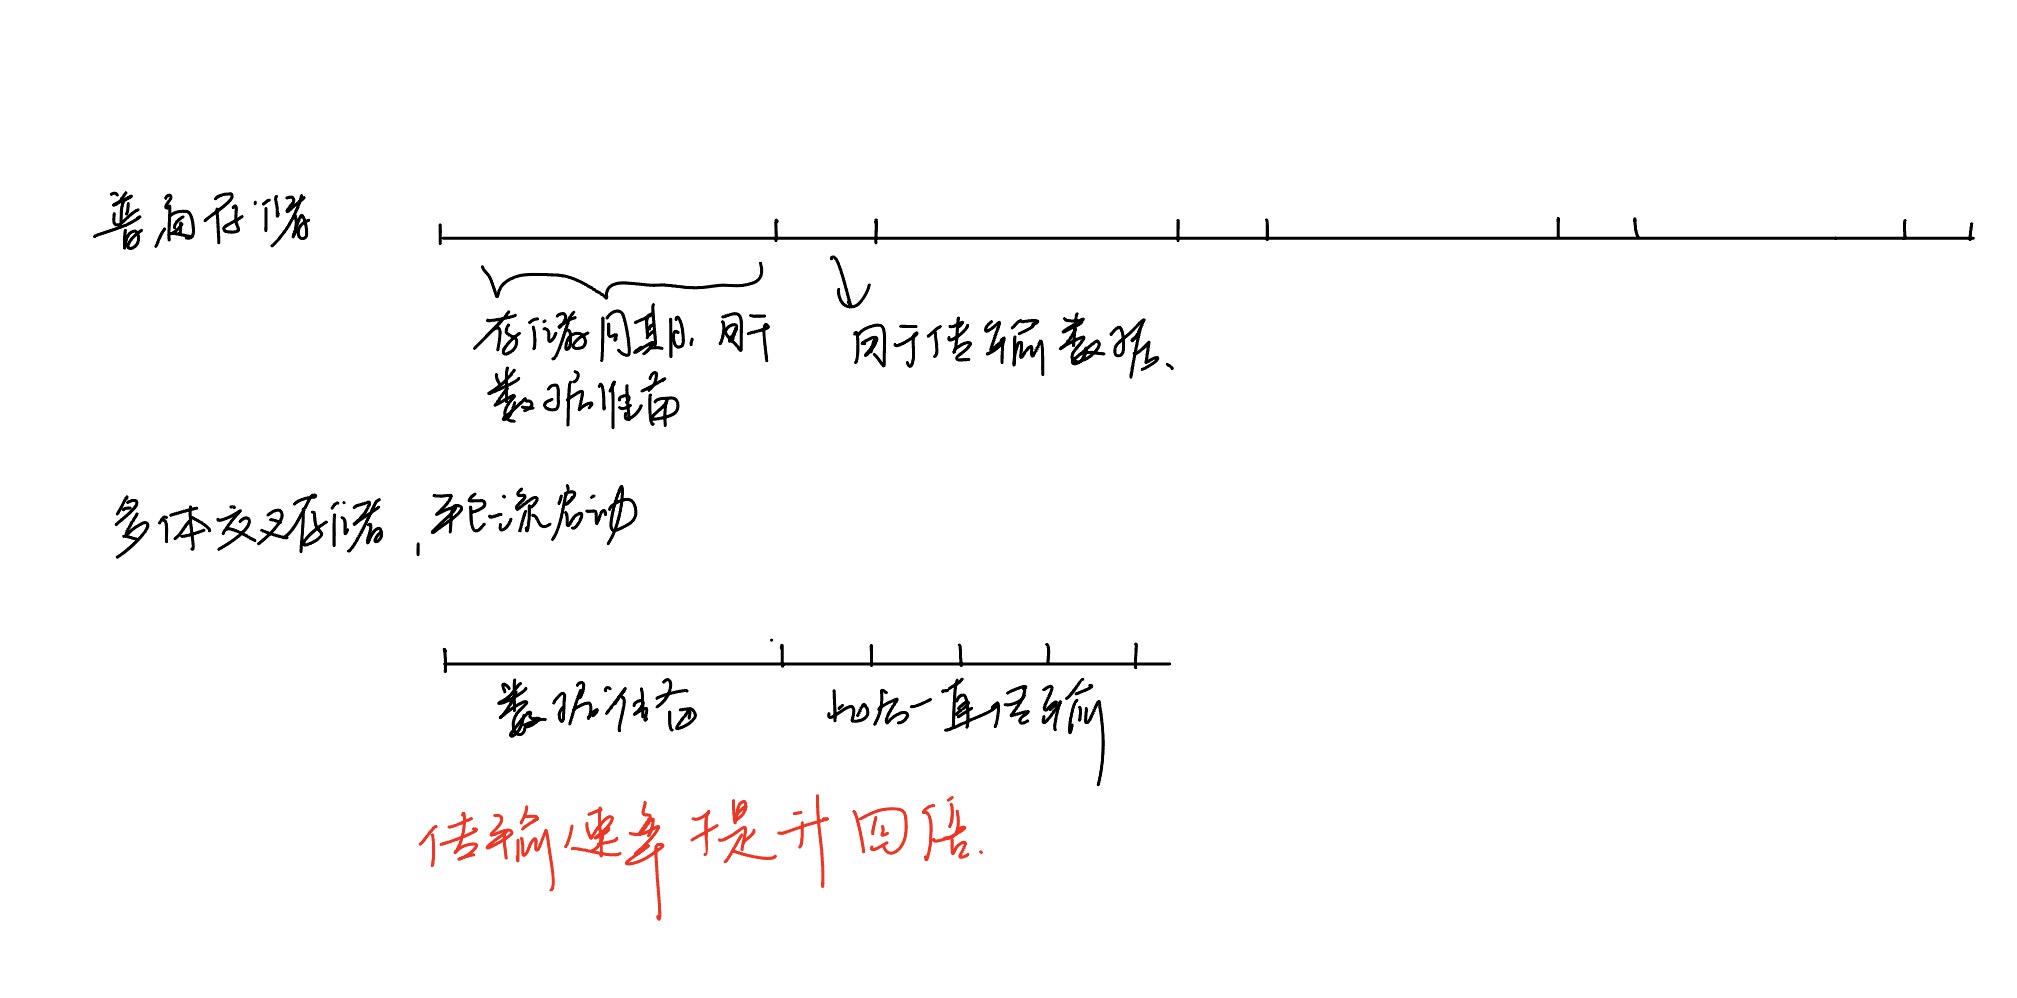 普通存储
存储周期，用于
数据准备
用于传输数据、
多体交叉存储，轮流启动
数据准备
然后一直传输
传输速率提升四倍.